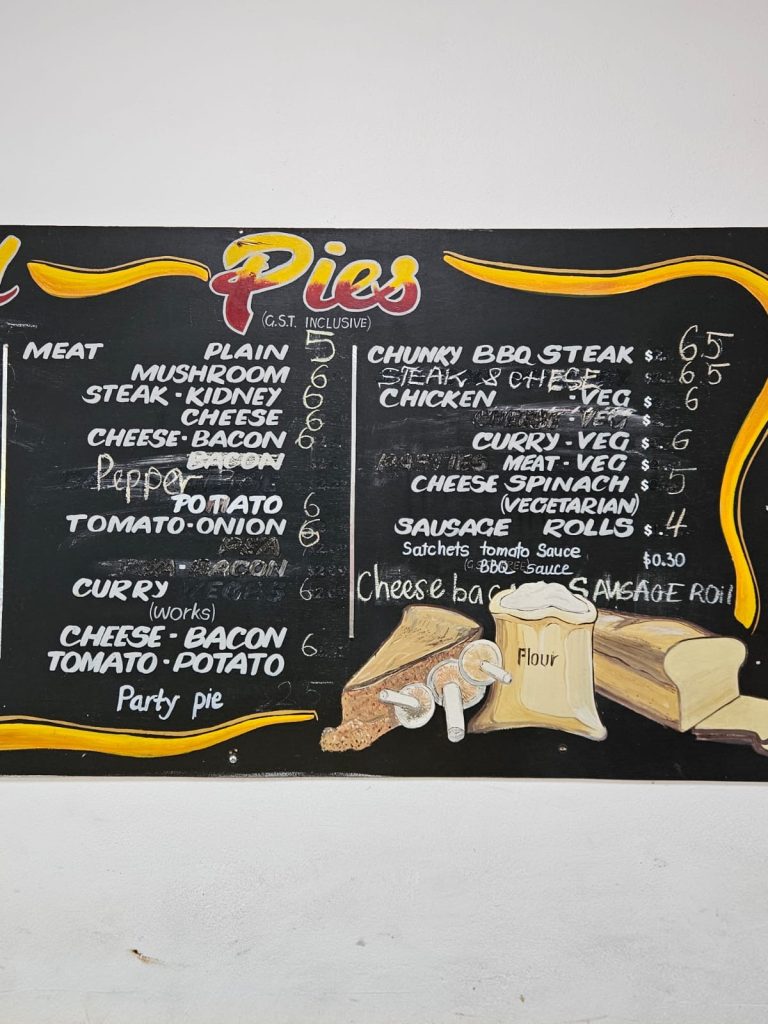 Pies
(G.S.T. INCLUSIVE)
MEAT PLAIN 5
MUSHROOM 6
STEAK · KIDNEY 6
CHEESE 6
CHEESE · BACON 6
BACON
Pepper
POTATO 6
TOMATO · ONION 6
BACON
CURRY VEGES 6
(works)
CHEESE · BACON 6
TOMATO · POTATO
Party pie 2.5
CHUNKY BBQ STEAK $ 6.5
STEAK & CHEESE 6.5
CHICKEN · VEG $ 6
CHEESE · VEG $
CURRY · VEG $ 6
MEAT · VEG $
CHEESE SPINACH $ 5
(VEGETARIAN)
SAUSAGE ROLLS $ 4
Satchets tomato Sauce $0.30
BBQ Sauce
Cheese SAUSAGE ROll
Flour